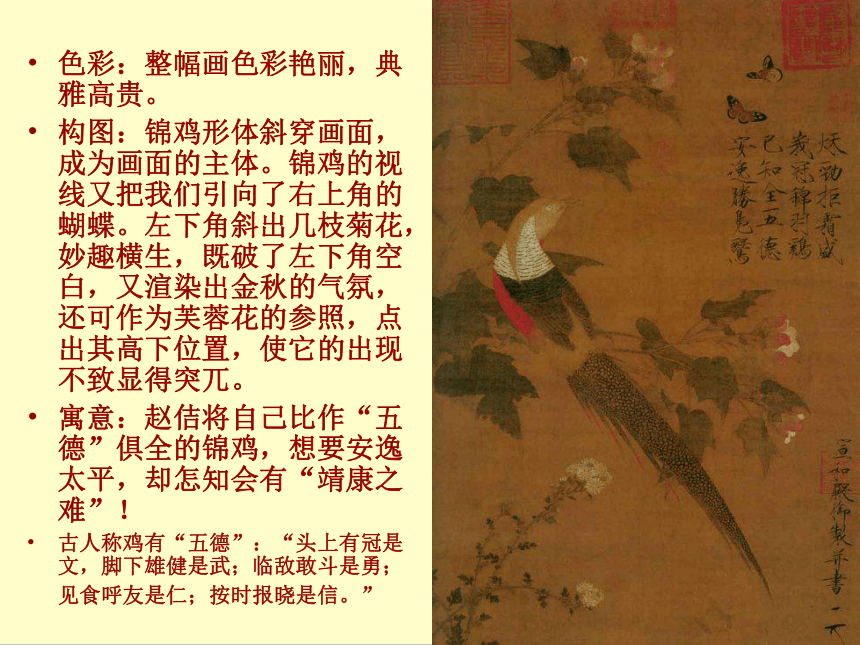 • 色彩：整幅画色彩艳丽，典
雅高贵。
• 构图：锦鸡形体斜穿画面，
成为画面的主体。锦鸡的视
线又把我们引向了右上角的
蝴蝶。左下角斜出几枝菊花，
妙趣横生，既破了左下角空
白，又渲染出金秋的气氛，
还可作为芙蓉花的参照，点
出其高下位置，使它的出现
不致显得突兀。
• 寓意：赵佶将自己比作“五
德”俱全的锦鸡，想要安逸
太平，却怎知会有“靖康之
难”！
• 古人称鸡有“五德”：“头上有冠是
文，脚下雄健是武；临敌敢斗是勇；
见食呼友是仁；按时报晓是信。”
秋勁拒霜盛
峩冠錦羽鷄
已知全五德
安逸勝鳧鷖
宣和殿御製并書